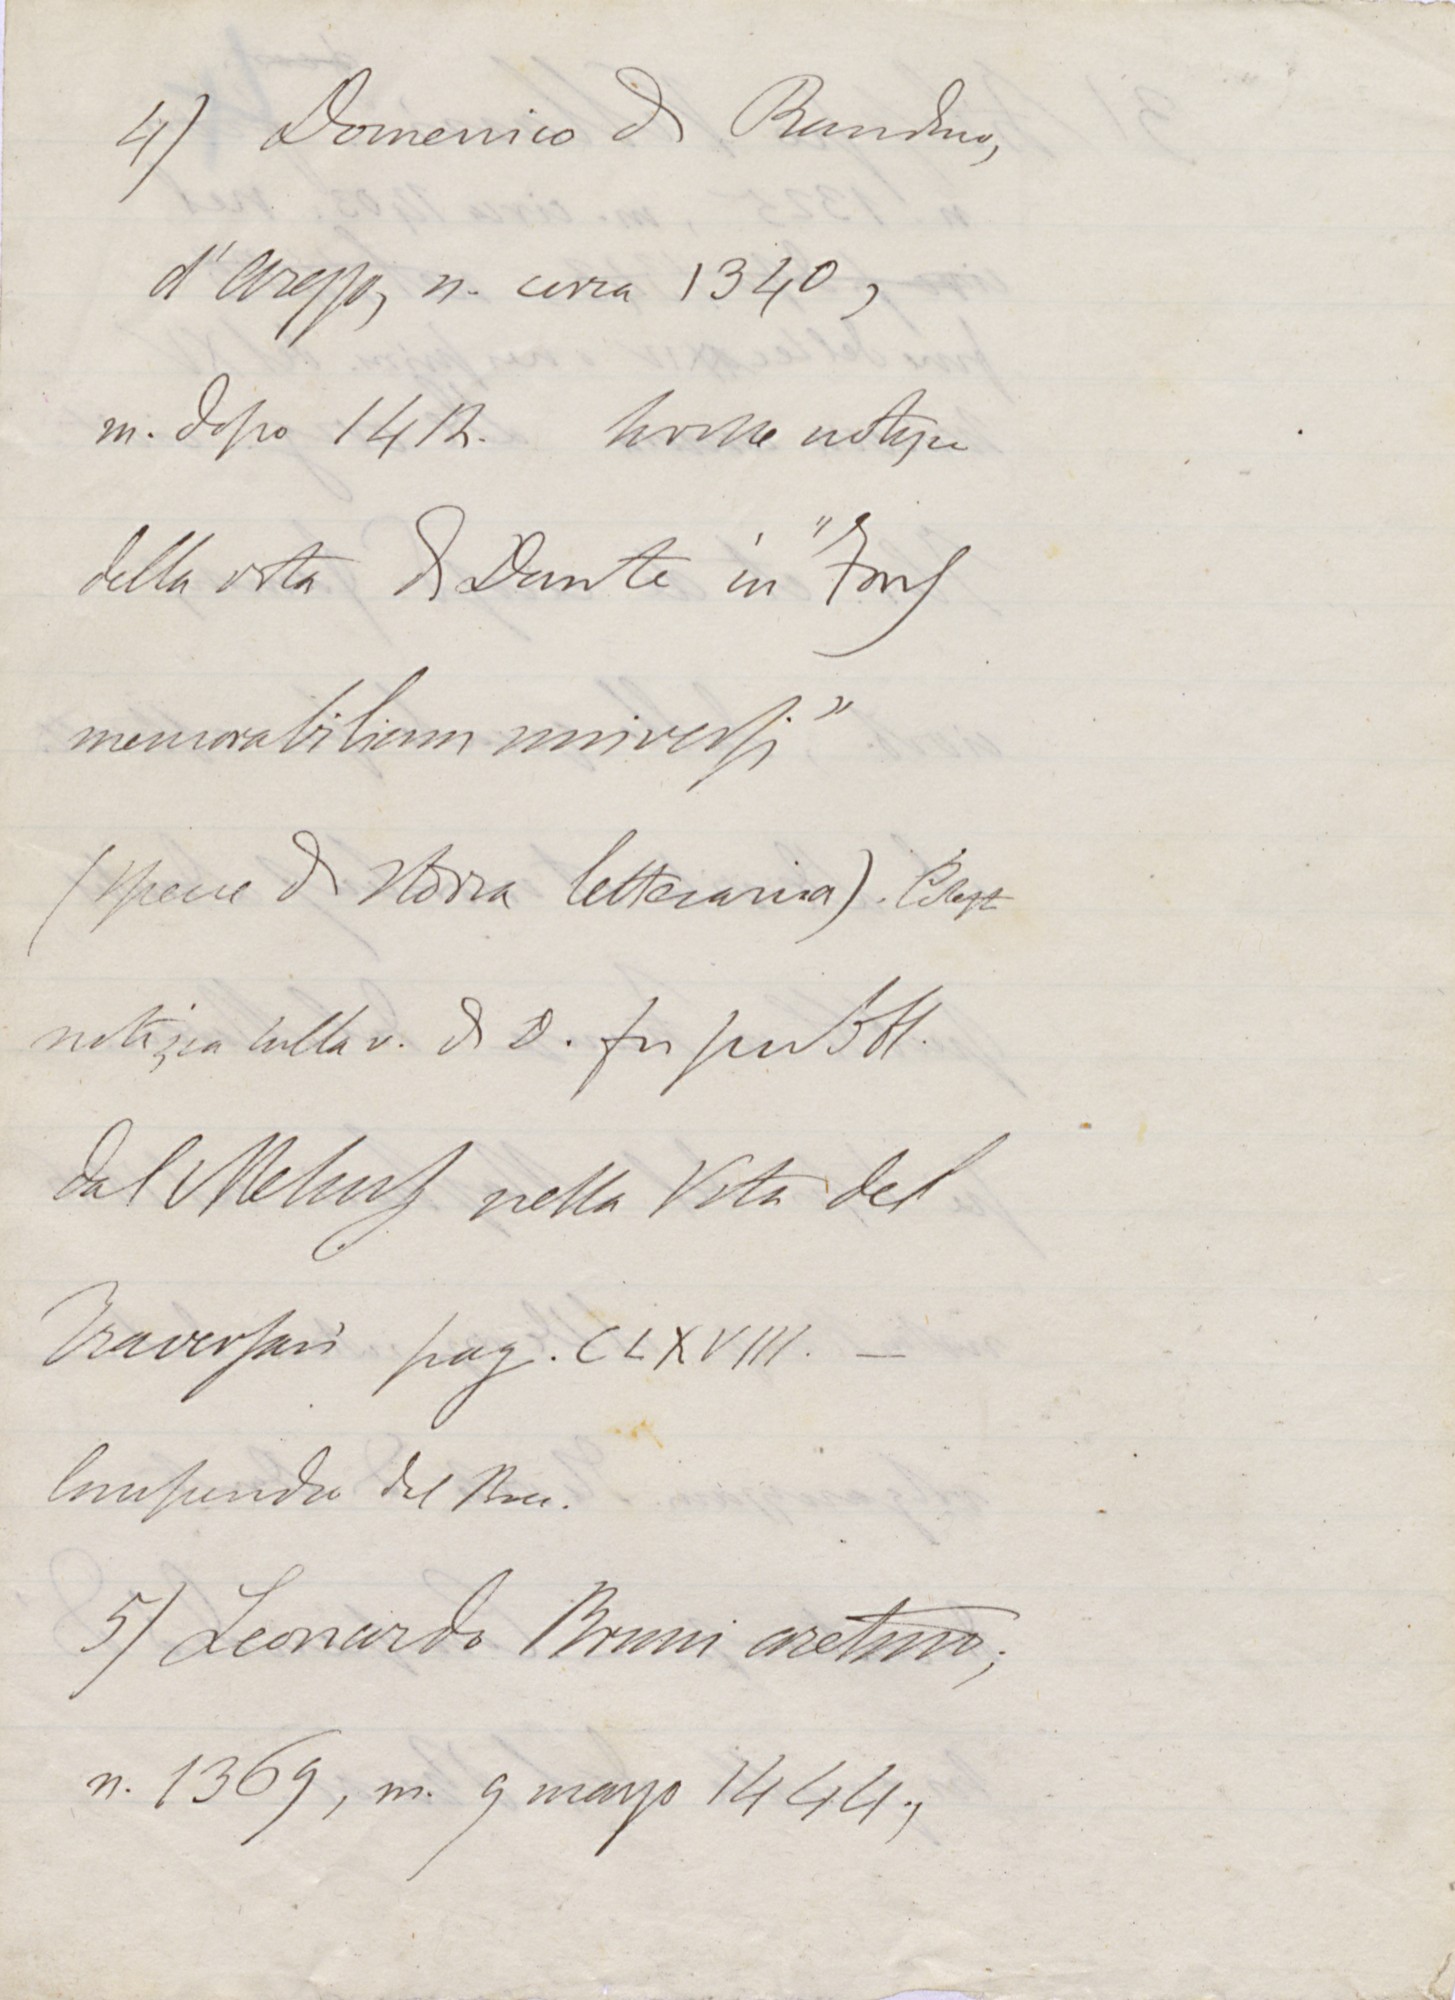 4) Domenico di Bandino,
d'Arezzo, n. circa 1340,
m. dopo 1412. brevi notizie
della vita di Dante in "Fons
memorabilium universi"
(specie di storia letteraria).
notizia sulla v. di D. fu pubbl.
dal Mehus nella Vita del
Traversari pag. CLXVIII. —
Compendio del Bocc.
5) Leonardo Bruni aretino;
n. 1369, m. 9 marzo 1444,